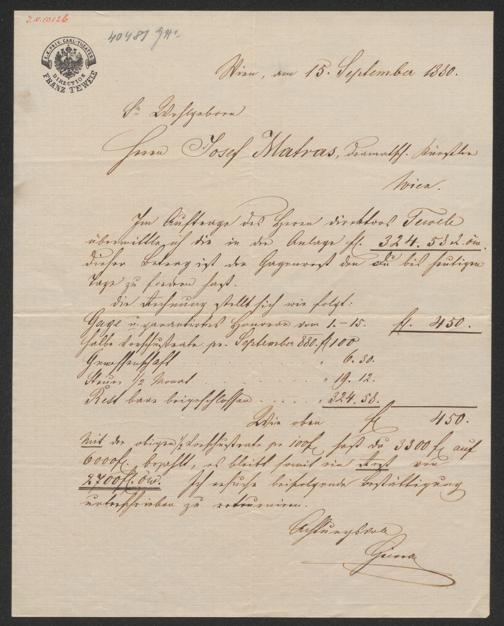 J.N. 60126
40481
K. K. PRIV. CARL-THEATER
DIRECTION
FRANZ TEWELE
Wien, am 15. September 1880.
Sr. Wohlgeboren
Herrn Josef Matras, dramatisch. Künstler
Wien.
Im Auftrage des Herrn Direktors Tewele
übermittle ich die in der Anlage fl. 324. 58 x ö.w.
dieser Betrag ist der Gagenrest den Du bis heutigen
Tage zu fordern hast.
Die Rechnung stellt sich wie folgt:
Gage u. garantirtes Honorar vom 1.–15. fl. 450.
halbe Vorschußrate pr. September 880. fl. 100
Genossenschaft " 6. 30.
Steuer 1/2 Monat " 19. 12.
Rest baar beigeschlossen " 324. 58.
Wie oben fl. 450.
Mit der obigen 1/2 Vorschußrate pr 100 fl. hast Du 3300 fl. auf
6000 fl. bezahlt, es bleibt somit ein Rest von
2700 fl. ö.w. Ich ersuche beifolgende Bestättigung
unterschrieben zu retourniren.
Achtungsvoll